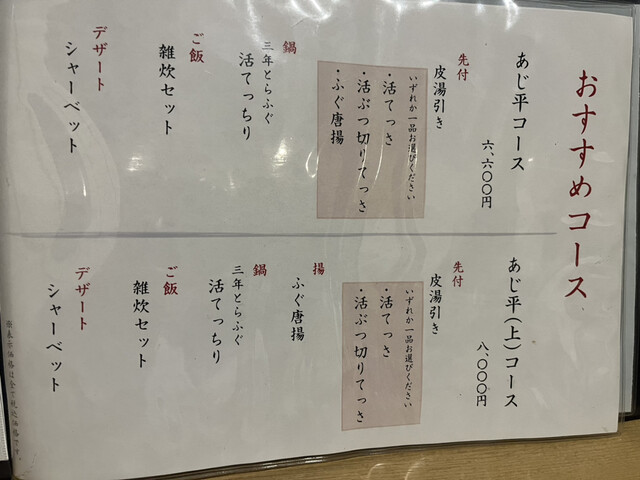 おすすめコース
あじ平コース
六、六〇〇円
先付
皮湯引き
いずれか一品お選びください
・活てっさ
・活ぶつ切りてっさ
・ふぐ唐揚
鍋
三年とらふぐ
活てっちり
ご飯
雑炊セット
デザート
シャーベット
あじ平(上)コース
八、〇〇〇円
先付
皮湯引き
いずれか一品お選びください
・活てっさ
・活ぶつ切りてっさ
揚
ふぐ唐揚
鍋
三年とらふぐ
活てっちり
ご飯
雑炊セット
デザート
シャーベット
※表示価格は全て税込価格です。